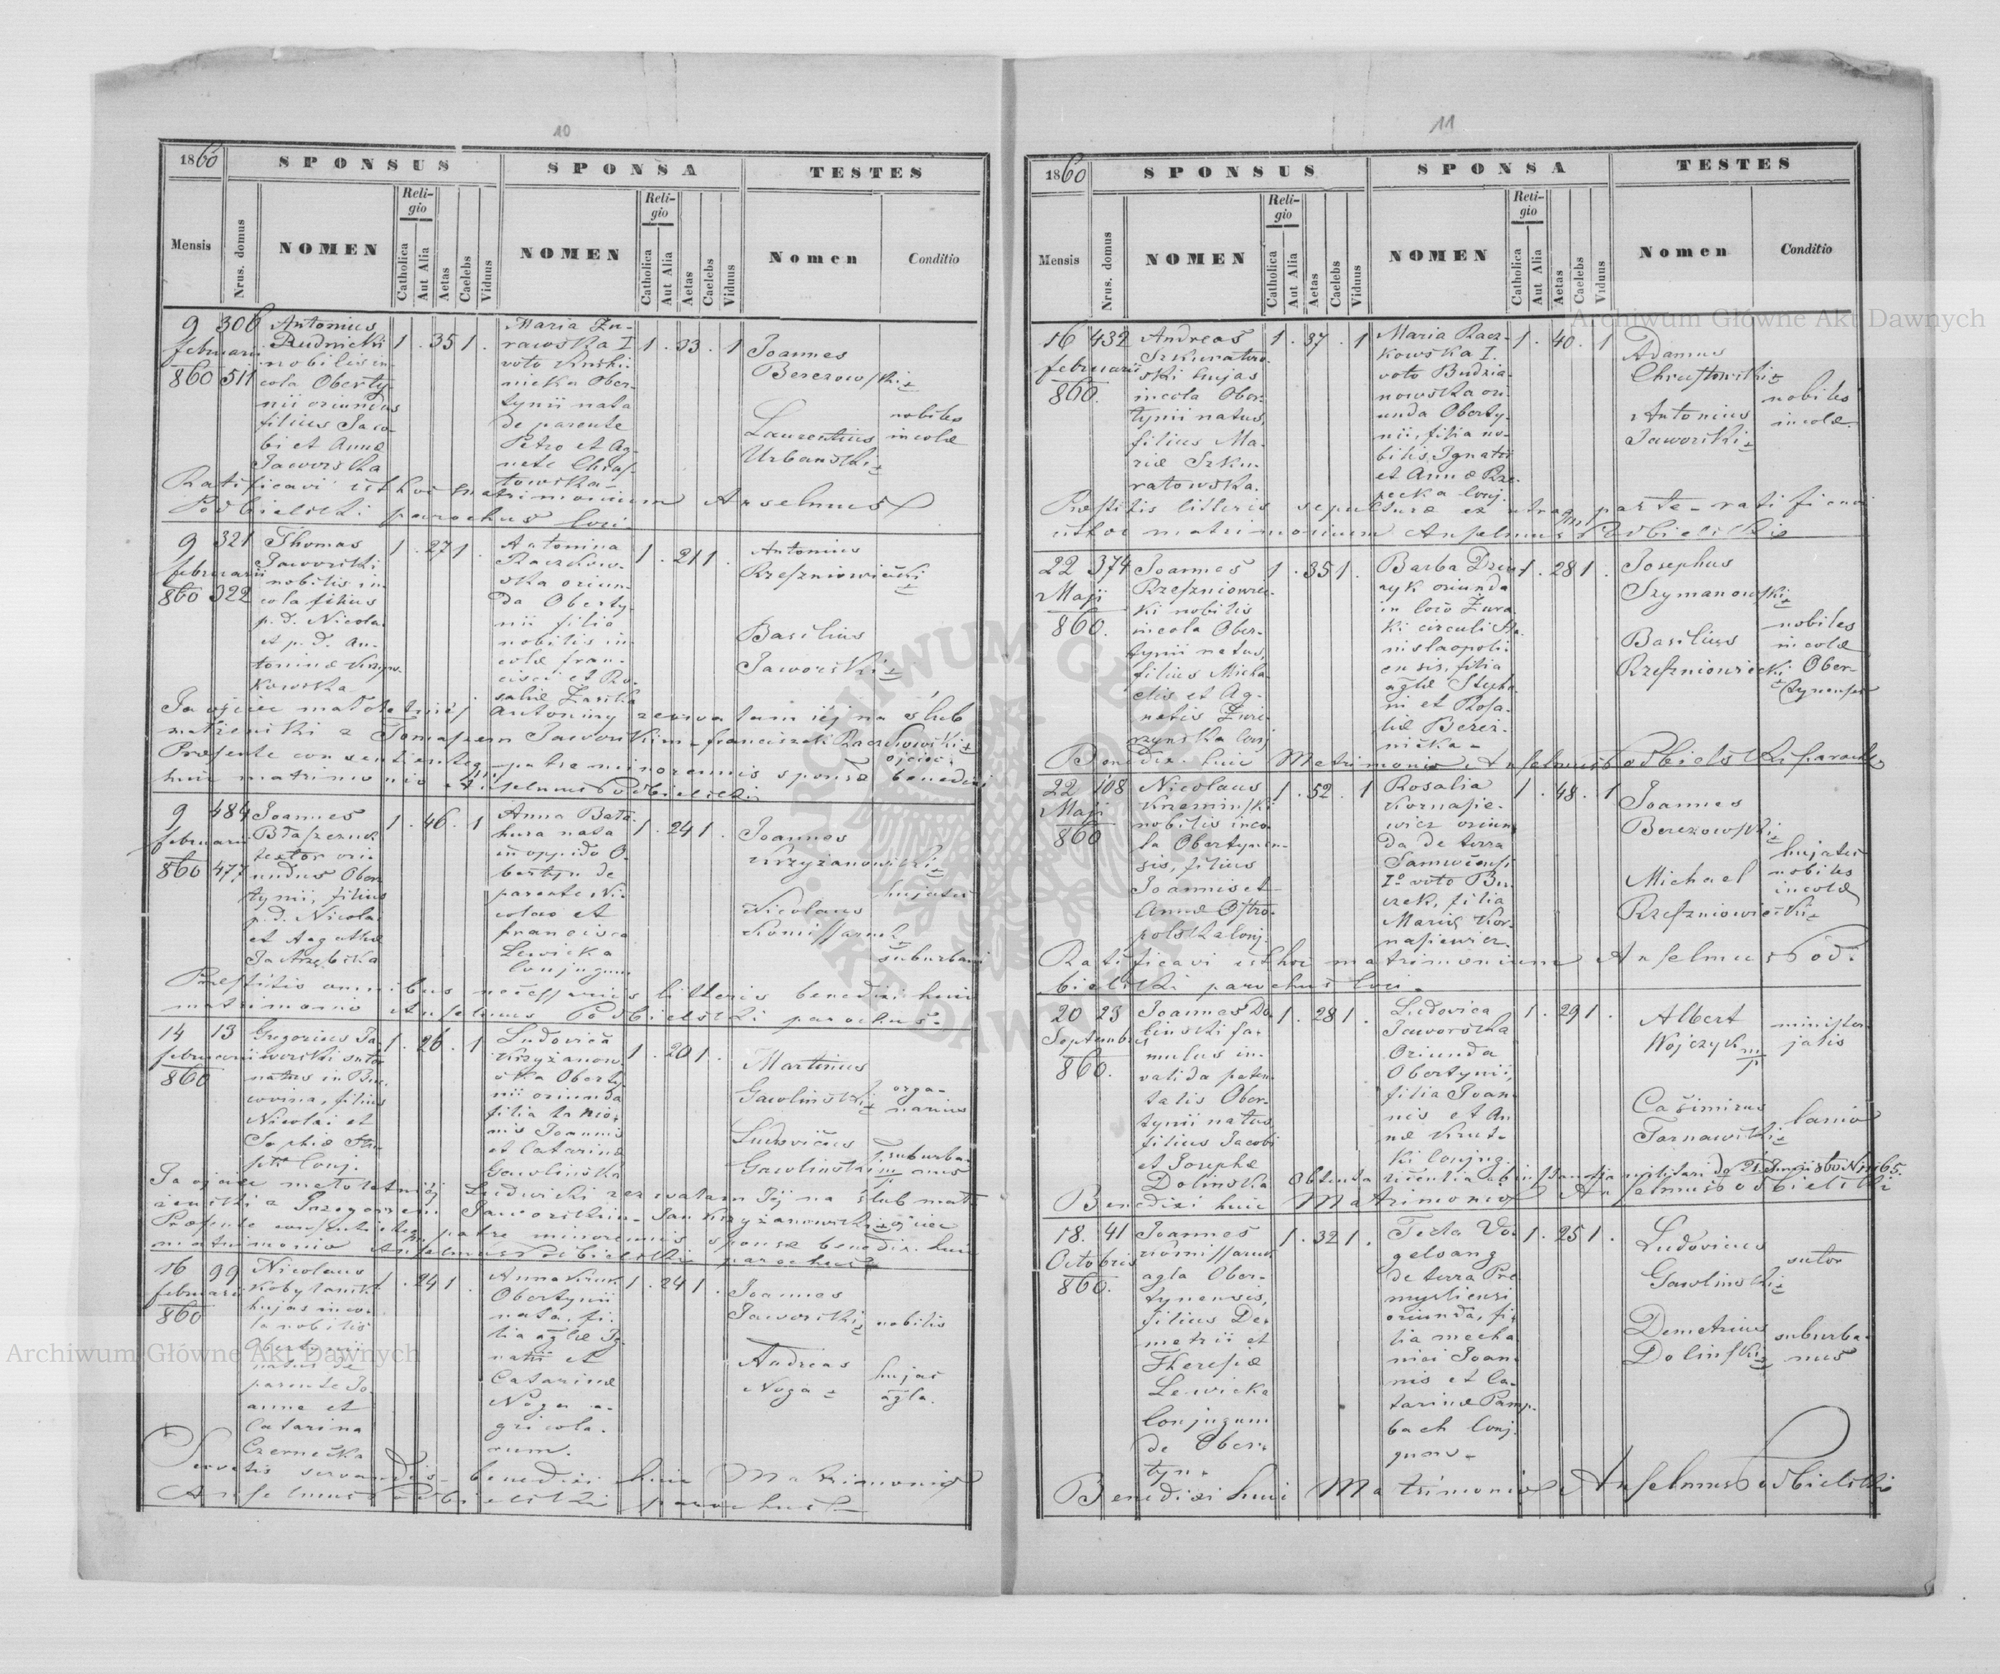 10
1860
SPONSUS
SPONSA
TESTES
Mensis
Nrus. domus
NOMEN
Religio
Catholica
Aut Alia
Aetas
Caelebs
Viduus
NOMEN
Religio
Catholica
Aut Alia
Aetas
Caelebs
Viduus
Nomen
Conditio
9
februarii
860
306
511
Antonius
Rudnicki
nobilis in-
cola Oberty-
nii oriundus
filius Jaco-
bi et Annæ
Jaworska
1 . 35 1 .
Maria Żu-
rawska I
voto
nicka Ober-
tynii nata
de parente
Petro et Ag-
nete Chras-
towska
1 . 33 . 1
Joannes
Berezowski
Laurentius
Urbanski
nobiles
incolæ
Ratificavi isthoc matrimonium Anselmus
Podbielski parochus loci
9
februarii
860
321
322
Thomas
Jaworski
nobilis in-
cola filius
p. d. Nicolai
et p. d. An-
toninæ Krzyw-
kowska
1 . 27 1 .
Antonina
Raczkow-
ska oriun-
da Oberty-
nii filia
nobilis in-
colæ fran-
cisci et Ro-
saliæ Zarska
1 . 21 1 .
Antonius
Rzeszniowiecki
Basilius
Jaworski
Ja ojciec małoletniéj Antoniny zezwalam iéj na ślub
małżeński z Tomaszem Jaworskim - franciszek Raczkowski
ojciec
Præsente consentienteq patre minorennis sponsæ benedixi
huic matrimonio Anselmus Podbielski
9
februarii
860
484
477
Joannes
Błaszczuk
textor ori-
undus Ober-
tynii, filius
p. d. Nicolai
et Agathæ
Jastrzębska
1 . 46 . 1
Anna Bata-
hura nata
in oppido O-
bertyn de
parente Ni-
colao et
francisca
Lewicka
Conjugum
1 . 24 1 .
Joannes
Krzyżanowski
Nicolaus
Komissaruk
hujates
suburbani
Præstitis omnibus necessariis litteris benedixi huic
matrimonio Anselmus Podbielski parochus
14
februarii
860
13
Gregorius Ja-
worski sutor
natus in Buc-
covina, filius
Nicolai et
Sophiæ
Conj.
1 . 26 . 1
Ludovica
Krzyżanow-
ska Oberty-
nii oriunda
filia lanio-
nis Joannis
et Catarinæ
Gawlinska
1 . 20 1 .
Martinus
Gawlinski
Ludovicus
Gawlinski
orga-
narius
suburba-
nus
Ja ojciec małoletniéj Ludwiki zezwalam Jéj na ślub mał-
żeński z Grzegorzem Jaworskim - Jan Krzyżanowski ojciec
Præsente consentienteq patre minorennis sponsæ benedixi huic
matrimonio Anselmus Podbielski parochus
16
februarii
860
99
Nicolaus
Kobylanski
hujas inco-
la nobilis
Obertynii
natus de
parente Jo-
anne et
Catarina
Czernecka
1 . 24 1 .
Anna Kruk
Obertynii
nata, fi-
lia aglæ Ig-
natii et
Catarinæ
Noga a-
gricola-
rum.
1 . 24 1 .
Joannes
Jaworski
Andreas
Noga
nobilis
hujas
agla.
Servatis servandis benedixi huic Matrimonio
Anselmus Podbielski parochus
11
1860
SPONSUS
SPONSA
TESTES
Mensis
Nrus. domus
NOMEN
Religio
Catholica
Aut Alia
Aetas
Caelebs
Viduus
NOMEN
Religio
Catholica
Aut Alia
Aetas
Caelebs
Viduus
Nomen
Conditio
16
februarii
860.
432
Andreas
Szkuratow-
ski hujas
incola Ober-
tynii natus,
filius Ma-
riæ Szku-
ratowska.
1 . 37 . 1
Maria Racz-
kowska I.
voto Budzia-
nowska ori-
unda Oberty-
nii, filia no-
bilis Ignatii
et Annæ Rze-
pecka Conj.
1 . 40 . 1
Adamus
Chrastowski
Antonius
Jaworski
nobiles
incolæ.
Præstitis litteris sepulturæ ex utraq parte ratificavi
isthoc matrimonium Anselmus Podbielski
22
Maji
860.
374
Joannes
Rzeszniowiec-
ki nobilis
incola Ober-
tynii natus,
filius Micha-
elis et Ag-
netis Zwie-
rzynska Conj
1 . 35 1 .
Barba Dzu-
ryk oriunda
in loco Żura-
ki circuli Sta-
nislaopoli-
ensis, filia
aglæ Stepha-
ni et Rosa-
liæ Berez-
nicka
1 . 28 1 .
Josephus
Szymanowski
Basilius
Rzeszniowiecki
nobiles
incolæ
Ober-
tynenses
Benedixi huic Matrimonio Anselmus Podbielski paroch
22
Maji
860
108
Nicolaus
Krzeminski
nobilis inco-
la Obertynen-
sis, filius
Joannis et
Annæ Ostro-
polska Conj.
1 . 52 . 1
Rosalia
Kornasie-
wicz oriun-
da de terra
I° voto Bu-
czek, filia
Mariæ Kor-
nasiewicz.
1 . 48 . 1
Joannes
Berezowski
Michael
Rzeszniowiecki
hujates
nobiles
incolæ
Ratificavi isthoc matrimonium Anselmus Pod-
bielski parochus loci.
20
Septembris
860.
23
Joannes Do-
linski fa-
mulus in-
valida paten-
talis Ober-
tynii natus
filius Jacobi
et Josephæ
Dolinska
1 . 28 1 .
Ludovica
Jaworska
Oriunda
Obertynii,
filia Joan-
nis et An-
næ Krut-
ki Conjug.
1 . 29 1 .
Albert
Wojczyk
mp
Casimirus
Tarnawski
minister-
jalis
lanio
Obtenta licentia ab instantia militari do 21 Junii 860 N 1165.
Benedixi huic Matrimonio Anselmus Podbielski
18.
Octobris
860.
41
Joannes
Komissaruk
agla Ober-
tynensis,
filius De-
metrii et
Theresiæ
Lewicka
Conjugum
de Ober-
tyn.
1 . 32 1 .
Tecla Vo-
gelsang
de terra Pre-
mysliensi
oriunda, fi-
lia mecha-
nici Joan-
nis et Ca-
tarinæ Pamp-
bach Conj-
gum
1 . 25 1 .
Ludovicus
Gawlinski
Demetrius
Dolinski
sutor
suburba-
nus
Benedixi huic Matrimonio Anselmus Podbielski
Archiwum Główne Akt Dawnych
Archiwum Główne Akt Dawnych